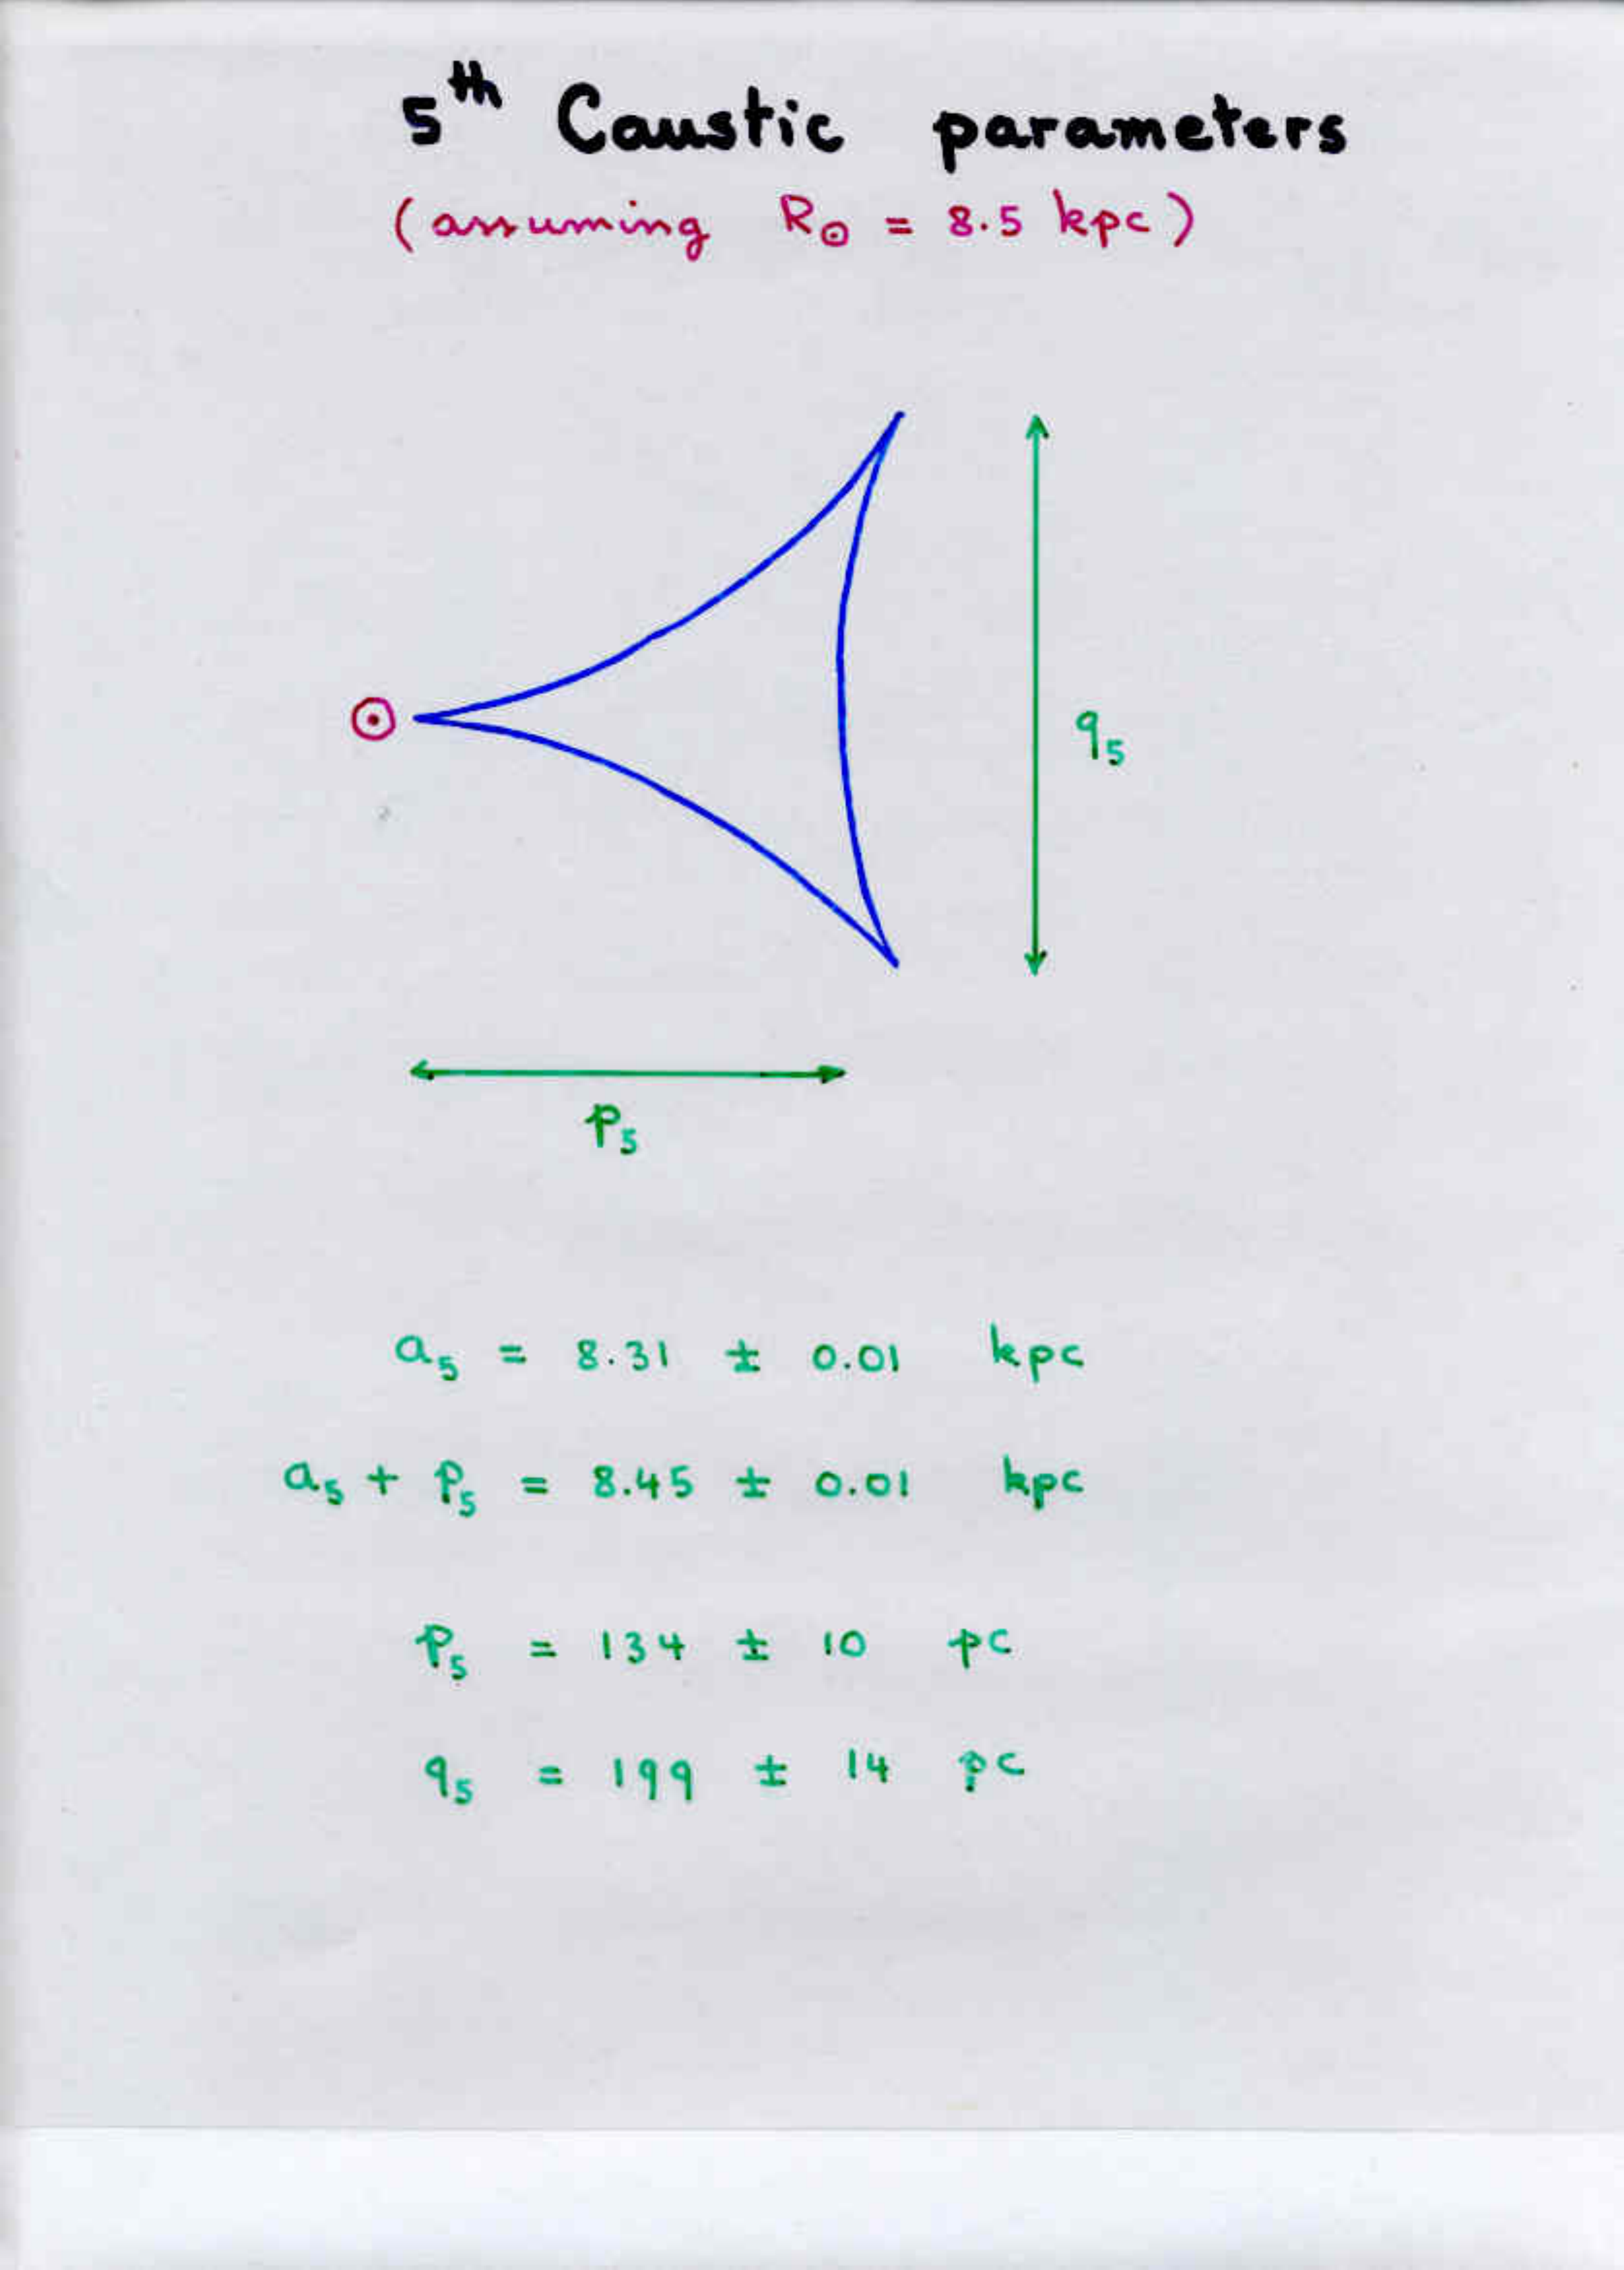 5th Caustic parameters
(assuming R☉ = 8.5 kpc)
q5
p5
a5 = 8.31 ± 0.01 kpc
a5 + p5 = 8.45 ± 0.01 kpc
p5 = 134 ± 10 pc
q5 = 199 ± 14 pc